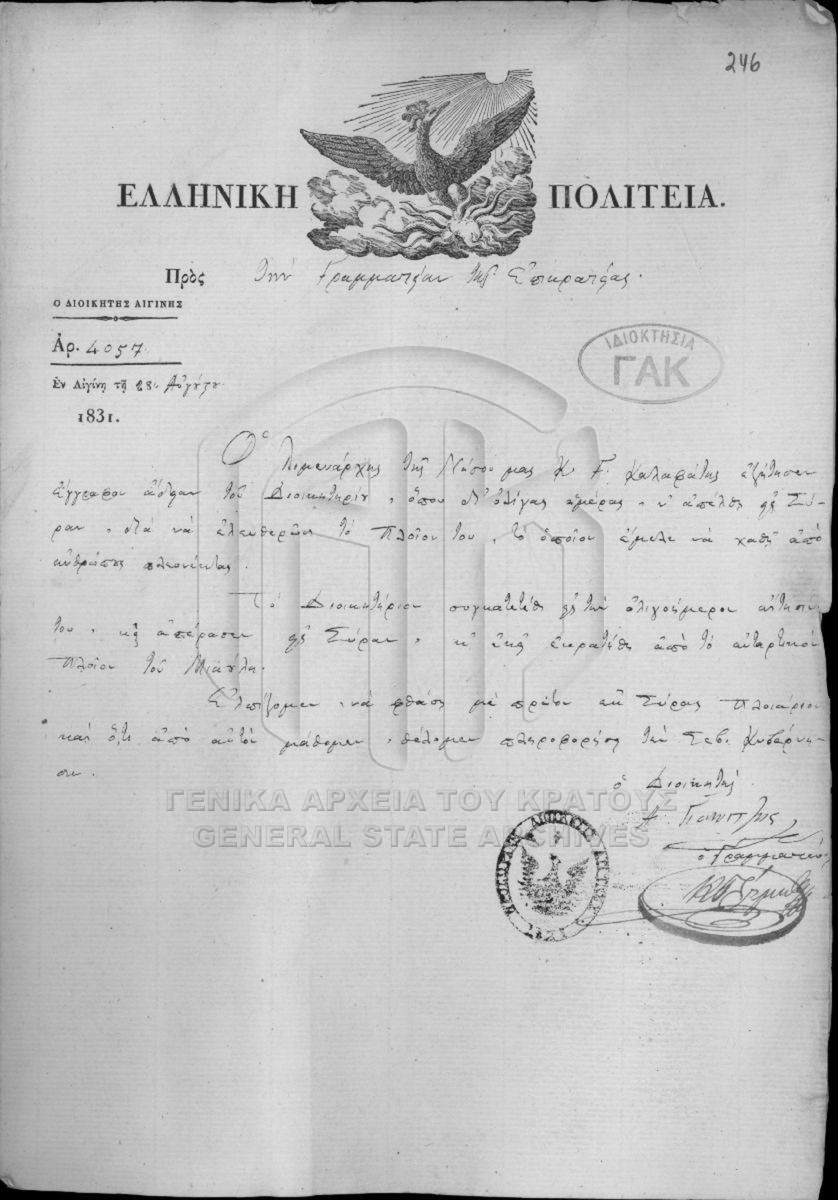 246
ΕΛΛΗΝΙΚΗ ΠΟΛΙΤΕΙΑ.
Πρὸς τὴν Γραμματείαν τῆς Ἐπικρατείας.
Ο ΔΙΟΙΚΗΤΗΣ ΑΙΓΙΝΗΣ
Ἀρ. 4057.
ΙΔΙΟΚΤΗΣΙΑ
ΓΑΚ
Ἐν Αἰγίνῃ τῇ 28 Αὐγούστου
1831.
Ὁ Λιμενάρχης τῆς Νήσου μας Κ. Γ. Καλαφάτης ἐζήτησεν
ἔγγραφον ἄδειαν τοῦ Διοικητηρίου, ὅπου δι' ὀλίγας ἡμέρας, ν' ἀπέλθῃ εἰς Σύ-
ραν, διὰ νὰ ἐλευθερώσῃ τὸ Πλοῖον του, τὸ ὁποῖον ἔμελε νὰ χαθῇ ἀπὸ
ἀνθρώπους πλεονέκτας.
Τὸ Διοικητήριον συγκατετέθη εἰς τὴν ὀλιγοήμερον αἴτησιν
του, καὶ ἀπέρασεν εἰς Σύραν, κ' ἐκεῖ ἐκρατήθη ἀπὸ τὸ ἀνταρτικὸν
Πλοῖον τοῦ Μιαούλη.
Ἐλπίζομεν νὰ φθάσῃ μὲ πρῶτον ἐκ Σύρας Πλοιάριον
καὶ ὅ,τι ἀπὸ αὐτὸν μάθομεν, θέλομεν πληροφορήσῃ τὴν Σεβ. Κυβέρνη-
σιν.
ὁ Διοικητής
ΓΕΝΙΚΑ ΑΡΧΕΙΑ ΤΟΥ ΚΡΑΤΟΥΣ
GENERAL STATE ARCHIVES
ὁ Γραμματεύς